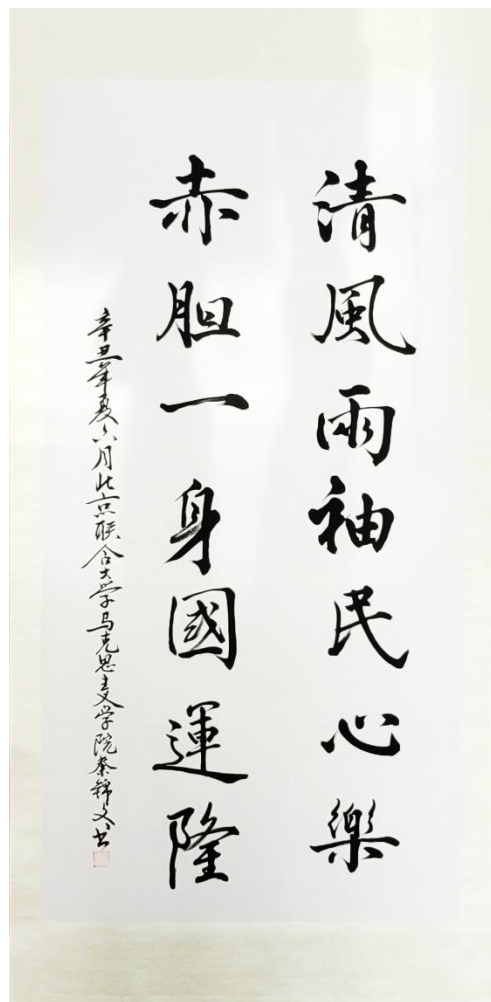 清風雨袖民心樂
赤胆一身國運隆
辛丑年夏六月北京联合大学马克思主义学院秦锦文书